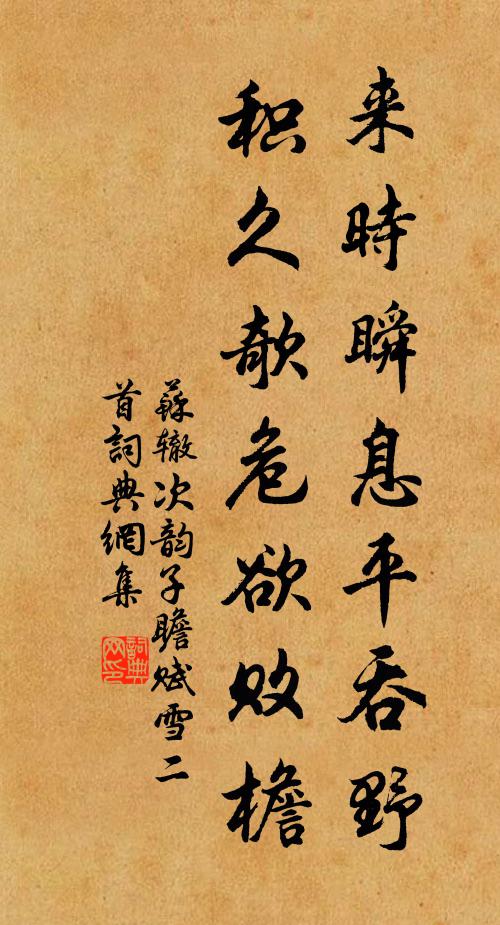 来時瞬息平吞野
积久欹危欲败檐
蘇辙次韵子瞻赋雪二
首詞典網集
詞典
网印